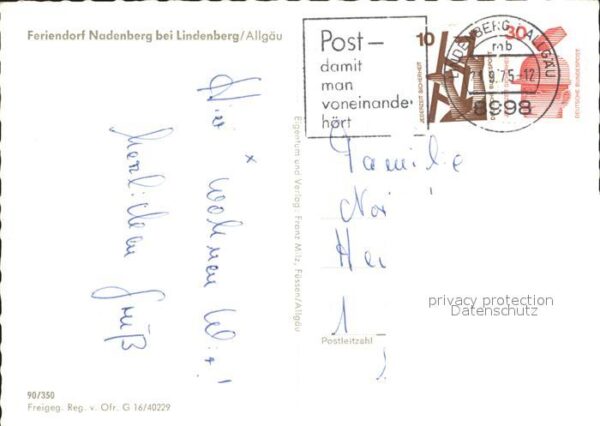 Feriendorf Nadenberg bei Lindenberg/Allgäu
Post-
damit
man
voneinander
hört
10
JEDERZEIT SICHERHEIT
DEUTSCHE BUNDESPOST
30
DEUTSCHE BUNDESPOST
LINDENBERG ALLGÄU
mb
9.75-12
8998
x wohnen wir!
herzlichen Gruß
Eigentum und Verlag: Franz Milz, Füssen/Allgäu
Familie
privacy protection
Datenschutz
1
Postleitzahl
90/350
Freigeg. Reg. v. Ofr. G 16/40229